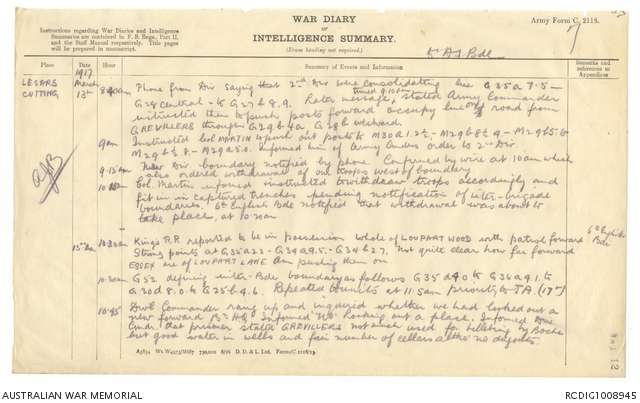 Army Form C. 2118.
WAR DIARY
OF
INTELLIGENCE SUMMARY.
(Erase heading not required.)
Instructions regarding War Diaries and Intelligence
Summaries are contained in F. S. Regs., Part II.
and the Staff Manual respectively. Title pages
will be prepared in manuscript.
Bde
Place
Date
Hour
Summary of Events and Information
Remarks and
references to
Appendices
LESARS
CUTTING
1917
March
13th
Phone from Div saying that 2nd Div were consolidating line G35a7.5 -
G28 central - to G27b8.9. Later message, timed stated Army Commander
instructed them to push posts forward occupy line of road from
GREVILLERS through G29b4a G28b westward.
9am
Instructed Col MARTIN to push out posts to M30a
M29b informed him of Army Cmdrs order to 2nd Div
9.15am
New Div boundary notified by phone. Confirmed by wire at 10am which
also ordered withdrawal of our troops west of boundary
Col. Martin informed instructed to withdraw troops accordingly and
fit in in captured trenches pending notification of inter-brigade
boundaries. 6th English Bde notified that withdrawal was about to
take place, at 10.20am
10.20am
Kings R.R. reported to be in possession whole of LOUPART WOOD with patrols forward
Strong points at G35a23 - G34a9.5 - G34b27. Not quite clear how far forward
ESSEX are of LOUPART LANE Am pushing them on
6th English
Bde
10.30am
G52 defining inter-Bde boundary as follows G35d40 to G36a4.1 to
G30d8.0 to G25b4.6. Repeated to units at 11.5am priority to TA (17th)
10.45
Divl Commander rang up and inquired whether we had looked out a
new forward Bde HQ Informed "No" Looking out a place. Informed Divl
Cmdr that prisoner stated GREVILLERS not much used for billeting by Boche
but good water in wells and fair number of cellars altho' no dugouts.
AUSTRALIAN WAR MEMORIAL
RCDIG1008945